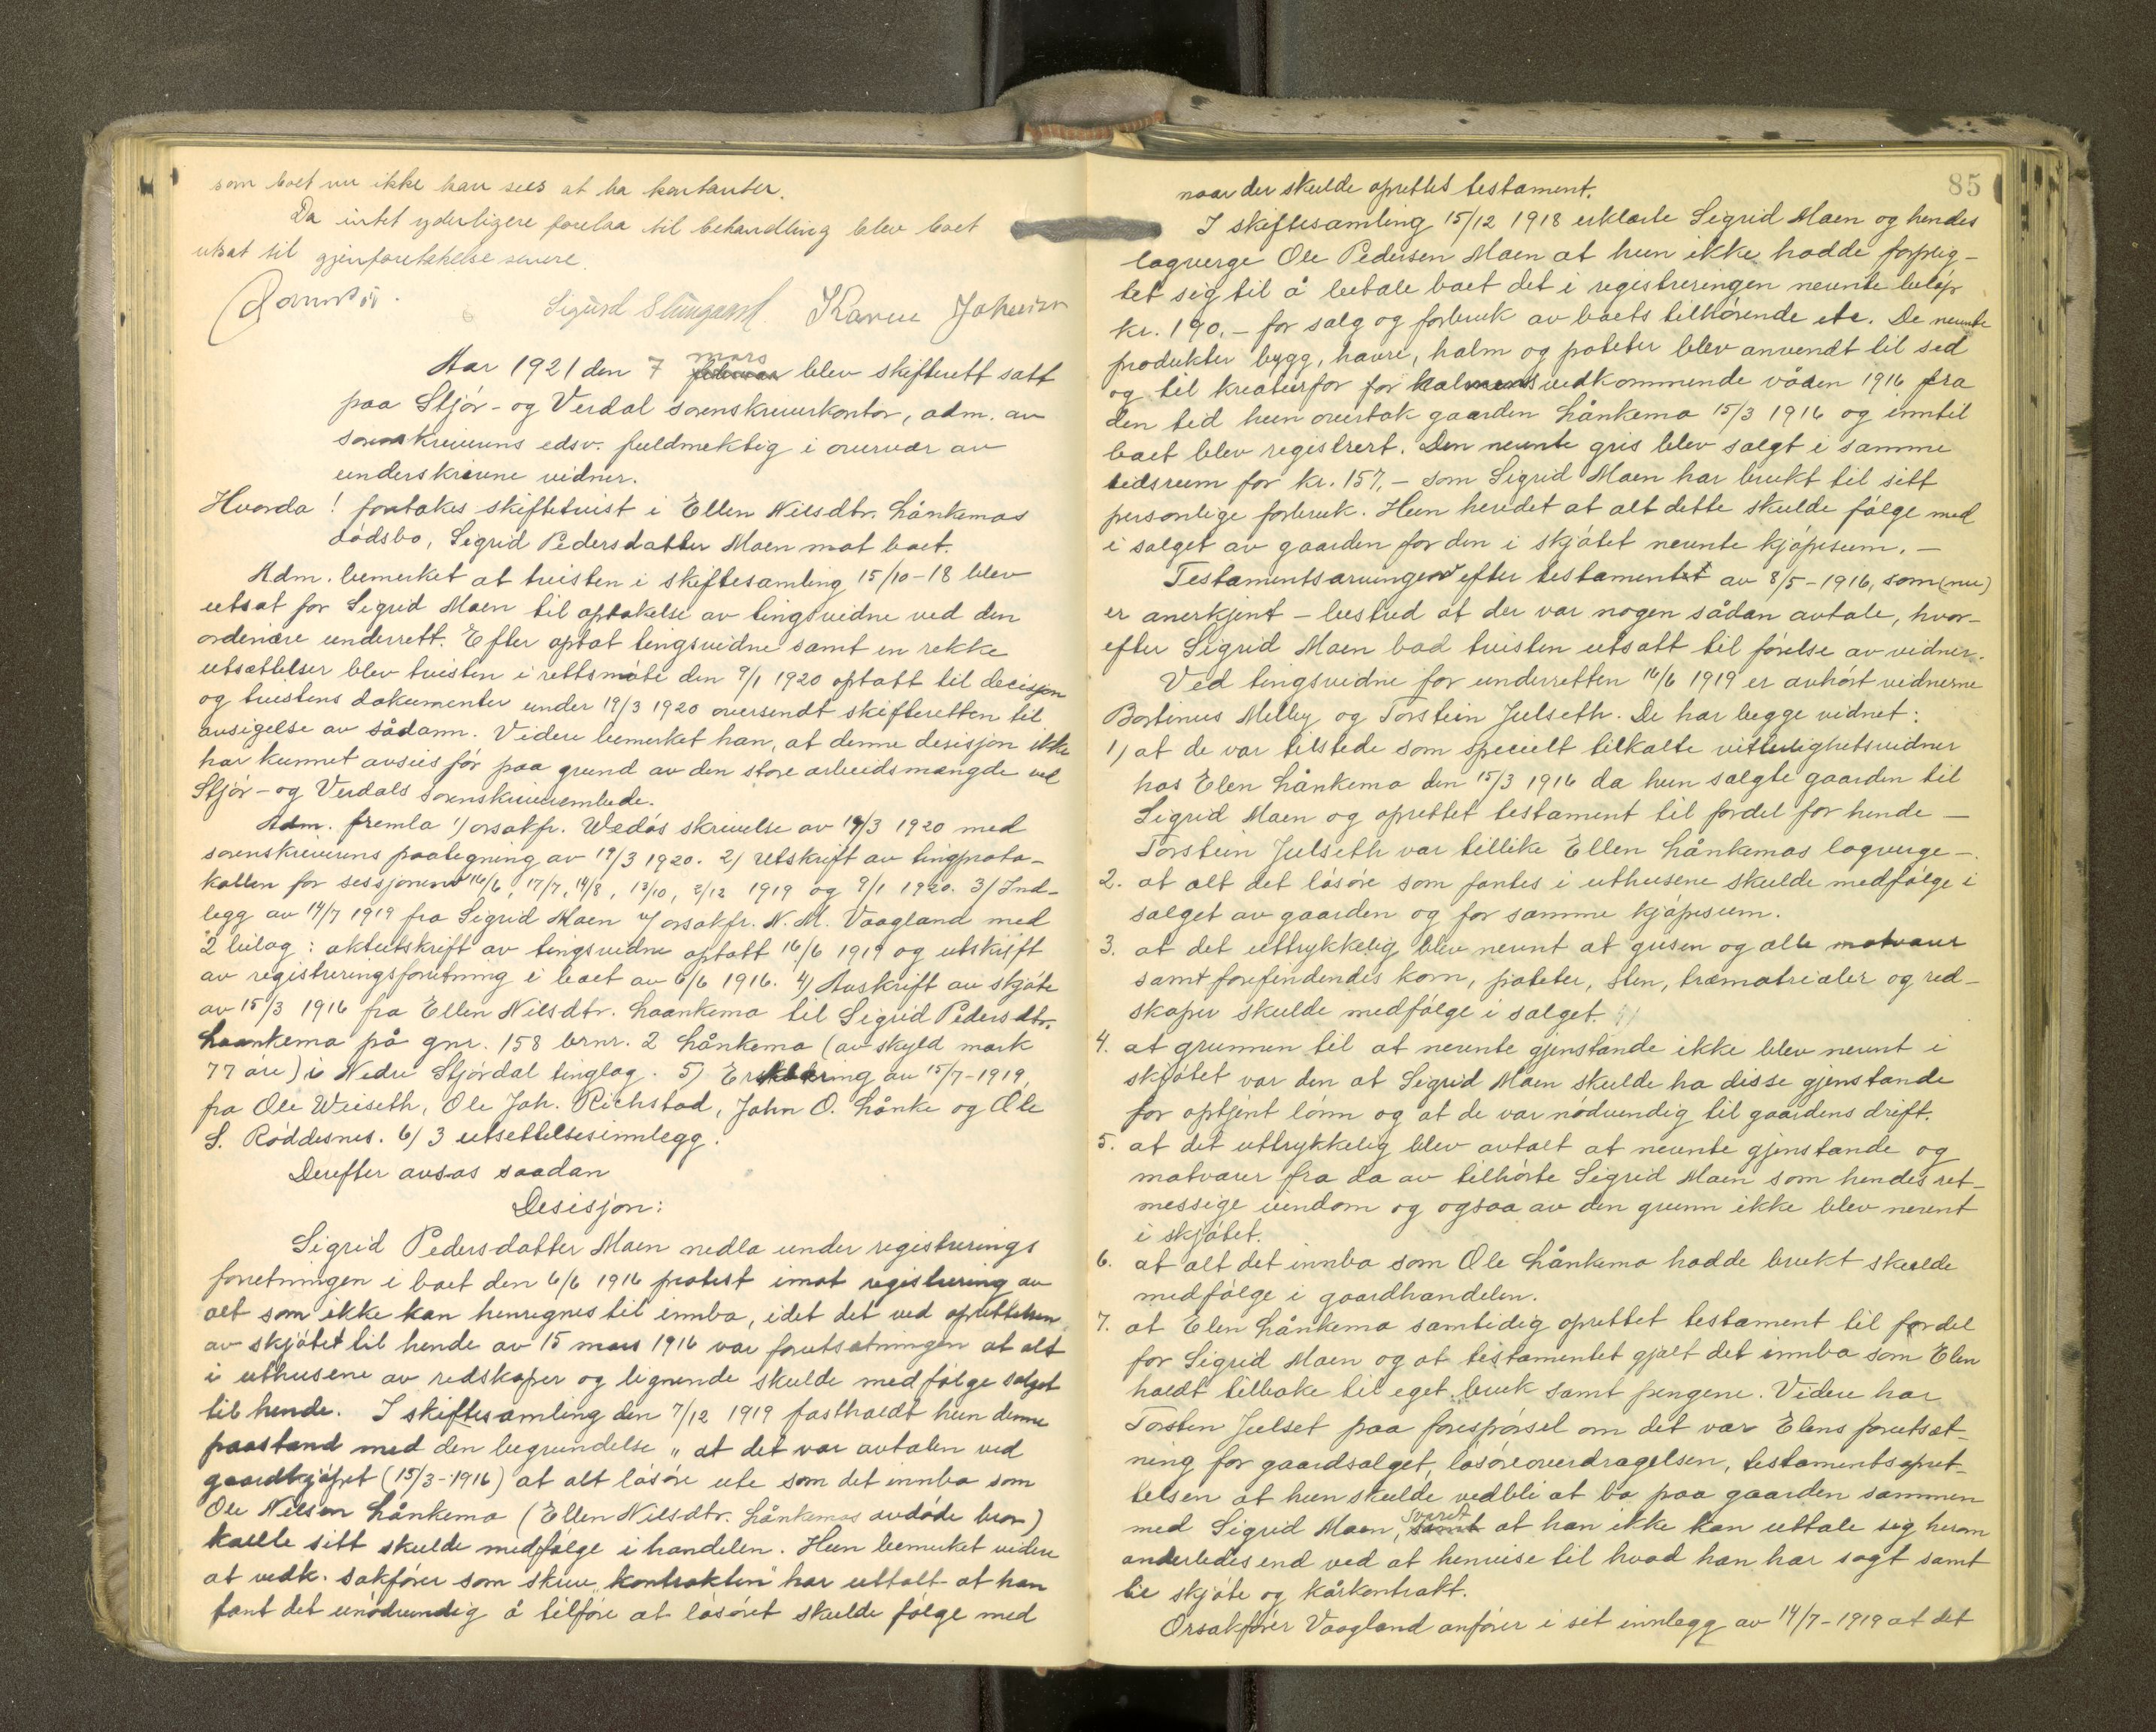 som boet nu ikke kan sees at ha kontanter.
Da intet yderligere forelaa til behandling blev boet
utsat til gjenforetakelse senere.
Sigurd Karen Johnsen
Aar 1921 den 7 mars blev skifterett satt
paa Stjör- og Verdal sorenskriverkontor, adm. av
sorenskriverens edsv. fuldmektig i overvær av
underskrevne vidner.
Hvorda! foretakes skiftetvist i Ellen Nilsdtr. Lånkemos
dödsbo, Sigrid Pedersdatter Moen mot boet.
Adm. bemerket at tvisten i skiftesamling 15/10-18 blev
utsat for Sigrid Moen til optakelse av tingsvidne ved den
ordinære underrett. Efter optat tingsvidne samt en rekke
utsættelser blev tvisten i rettsmöte den 9/1 1920 optatt til decisjon
og tvistens dokumenter under 19/3 1920 oversendt skifteretten til
avsigelse av sådann. Videre bemerket han, at denne desisjon ikke
har kunnet avsies för paa grund av den store arbeidsmængde ved
Stjör- og Verdals sorenskriverembede.
Adm. fremla 1) orsakfr. Wedös skrivelse av 19/3 1920 med
sorenskriverens paategning av 19/3 1920. 2) Utskrift av tingproto-
kollen for sessjonene 16/6, 17/7, 14/8, 13/10, 2/12 1919 og 9/1 1920. 3) Ind-
legg av 14/7 1919 fra Sigrid Moen v/ orsakfr. N. M. Vaagland med
2 bilag: aktutskrift av tingsvidne optatt 16/6 1919 og utskrift
av registreringsforretning i boet av 6/6 1916. 4) Avskrift av skjöte
av 15/3 1916 fra Ellen Nilsdtr. Laankemo til Sigrid Pedersdtr.
Laankemo på gnr. 158 brnr. 2 Lånkemo (av skyld mark
77 öre) i Nedre Stjördal tinglag. 5) Erklæring av 15/7-1919,
fra Ole Weiseth, Ole Joh. Richstad, John O. Lånke og Ole
L. Röddesnes. 6) 3 utsettelsesinnlegg.
Derefter avsas saadan
Desisjon:
Sigrid Pedersdatter Moen nedla under registrerings
forretningen i boet den 6/6 1916 protest imot registrering av
alt som ikke kan henregnes til innbo, idet det ved oprettelsen
av skjötet til hende av 15 mars 1916 var forutsetningen at alt
i uthusene av redskaper og lignende skulde medfölge salget
til hende. I skiftesamling den 7/12 1919 fastholdt hun denne
paastand med den begrundelse „at det var avtalen ved
gaardkjöpet (15/3-1916) at alt lösöre ute som det innbo som
Ole Nilsen Lånkemo (Ellen Nilsdtr. Lånkemos avdöde bror)
kallte sitt skulde medfölge i handelen. Hun bemerket videre
at vedk. sakförer som skrev „kontrakten" har uttalt at han
fant det unödvendig å tilföre at lösöret skulde fölge med
85
naar der skulde oprettes testament.
I skiftesamling 15/12 1918 erklærte Sigrid Moen og hendes
lagverge Ole Pedersen Moen at hun ikke hadde forplig-
tet sig til å betale boet det i registreringen nevnte belöp
kr. 190,- for salg og forbruk av boets tilhörende etc. De nevnte
produkter bygg, havre, halm og poteter blev anvendt til sæd
og til kreaturfor for halmens vedkommende våren 1916 fra
den tid hun overtok gaarden Lånkemo 15/3 1916 og inntil
boet blev registrert. Den nevnte gris blev solgt i samme
tidsrum for kr. 157,- som Sigrid Moen har brukt til sitt
personlige forbruk. Hun hevdet at alt dette skulde fölge med
i salget av gaarden for den i skjötet nevnte kjöpesum. -
Testamentsarvingene efter testamentet av 8/5-1916, som (nu)
er anerkjent - bestred at der var nogen sådan avtale, hvor-
efter Sigrid Moen bad tvisten utsatt til förelse av vidner.
Ved tingsvidne for underretten 16/6 1919 er avhört vidnerne
Bortinus Melby og Torstein Julseth. De har begge vidnet:
1) at de var tilstede som specielt tilkalte vitterlighetsvidner
hos Elen Lånkemo den 15/3 1916 da hun solgte gaarden til
Sigrid Moen og oprettet testament til fordel for hende —
Torstein Julseth var tillike Ellen Lånkemos lagverge -.
2. at alt det lösöre som fantes i uthusene skulde medfölge i
salget av gaarden og for samme kjöpesum.
3. at det uttrykkelig blev nevnt at grisen og alle matvarer
samt forefindendes korn, poteter, sten, træmatrialer og red-
skaper skulde medfölge i salget.
4. at grunnen til at nevnte gjenstande ikke blev nevnt i
skjötet var den at Sigrid Moen skulde ha disse gjenstande
for optjent lönn og at de var nödvendig til gaardens drift.
5. at det uttrykkelig blev avtalt at nevnte gjenstande og
matvarer fra da av tilhörte Sigrid Moen som hendes ret-
messige eiendom og ogsaa av den grunn ikke blev nevnt
i skjötet.
6. at alt det innbo som Ole Lånkemo hadde brukt skulde
medfölge i gaardhandelen.
7. at Elen Lånkemo samtidig oprettet testament til fordel
for Sigrid Moen og at testamentet gjalt det innbo som Elen
holdt tilbake til eget bruk samt pengene. Videre har
Torsten Julset paa forespörsel om det var Elens forutsæt-
ning for gaardsalget, lösöreoverdragelsen, testamentsopret-
telsen at hun skulde vedbli at bo paa gaarden sammen
med Sigrid Moen, svaret at han ikke kan uttale sig herom
anderledes end ved at henvise til hvad han har sagt samt
til skjöte og kårkontrakt.
Orsakförer Vaagland anförer i sit innlegg av 14/7-1919 at det